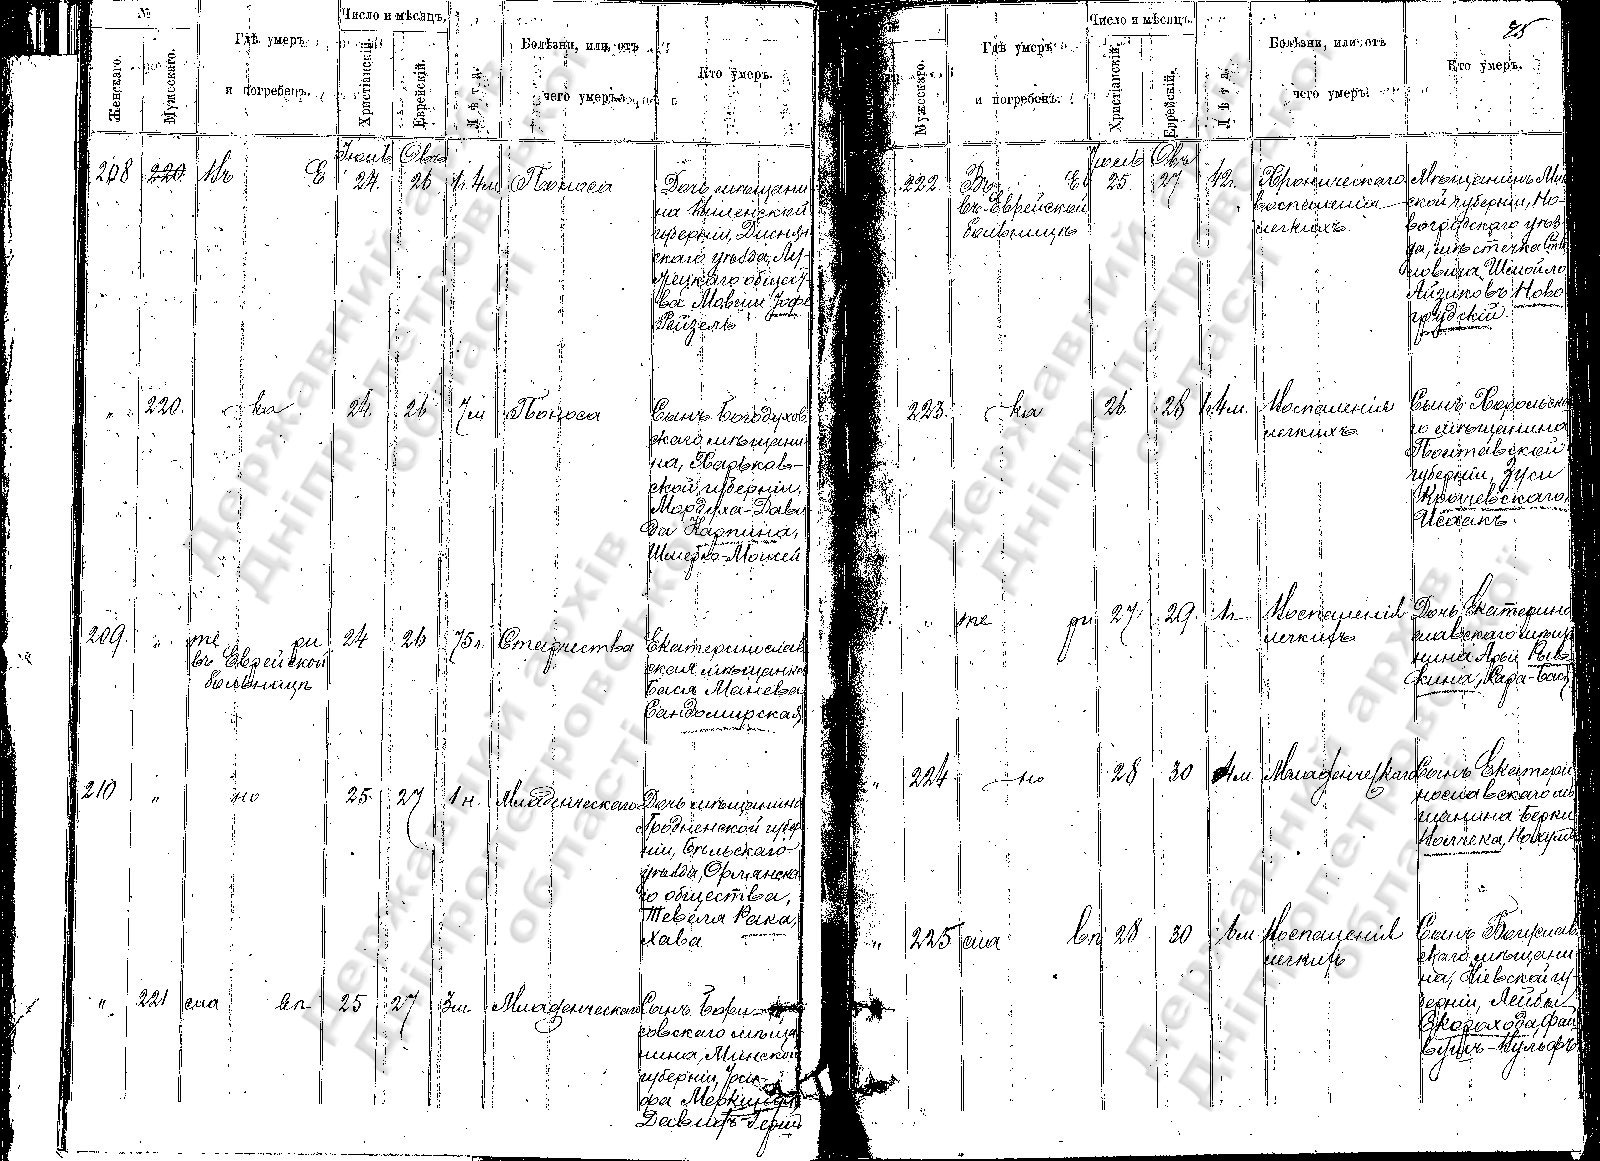 №
Число и мѣсяцъ.
Женскаго.
Мужскаго.
Гдѣ умеръ
и погребенъ.
Христіанскій
Еврейскій.
Лѣта.
Болѣзни, или отъ
чего умеръ.
Кто умеръ.
208 220 Въ Е
Іюль Овъ
24. 26 1г. 4м Поноса
Дочь мѣщани
на Виленской
губерніи, Диснян
скаго уѣзда, Лу-
жецкаго общест
ва Мовши Іофе
Рейзель
" 220. ка 24. 26 7м Поноса
Сынъ Богодухов
скаго мѣщани
на, Харьков-
ской губерніи,
Мордуха-Дави
да Карпина,
Шмерко-Мовшей
209. " те ри 24 26 75л. Старчества
въ Еврейской
больницѣ
Екатеринослав
ская мѣщанка
Бася Манева
Сандомирская
210 " но 25. 27 1н. Младенческаго
Дочь мѣщанина
Гродненской губер
ніи, Бѣльскаго
уѣзда, Орлянска
го общества,
Тевеля Рака,
Хава
" 221 сла вп 25 27 3м Младенческаго
Сынъ Бори
совскаго мѣща
нина, Минской
губерніи,
Давидъ-Герш
75
Число и мѣсяцъ.
Мужскаго.
Гдѣ умеръ
и погребенъ.
Христіанскій.
Еврейскій.
Лѣта.
Болѣзни, или отъ
чего умеръ.
Кто умеръ.
222 Въ Е
въ Еврейской
больницѣ
Іюль Овъ
25 27 42г. Хроническаго
воспаленія
легкихъ
Мѣщанинъ Мин
ской губерніи, Но-
вогрудскаго уѣз-
да, мѣстечка
Шмойло
Айзиковъ Ново
грудскій
223. ка 26 28 1г. 4м. Воспаленія
легкихъ
Сынъ Хорольска
го мѣщанина
Полтавской
губерніи, Зуси
Крычевскаго,
Исаакъ.
" те ри 27. 29. 1г. Воспаленія
легкихъ
Дочь Екатерино
славскаго мѣща
нина Арьи Рыв
кина, Сара-Бася
" 224 но 28 30 4м Младенческаго
Сынъ Екатери
нославскаго мѣ
щанина Берки
" 225 сла вп 28 30 Воспаленія
легкихъ
Сынъ Богуслав
скаго мѣщани
на, Кіевской гу
берніи, Лейбы
Скорохода, Фай
вушъ-Вульфъ
Державний архів
Дніпропетровської
області